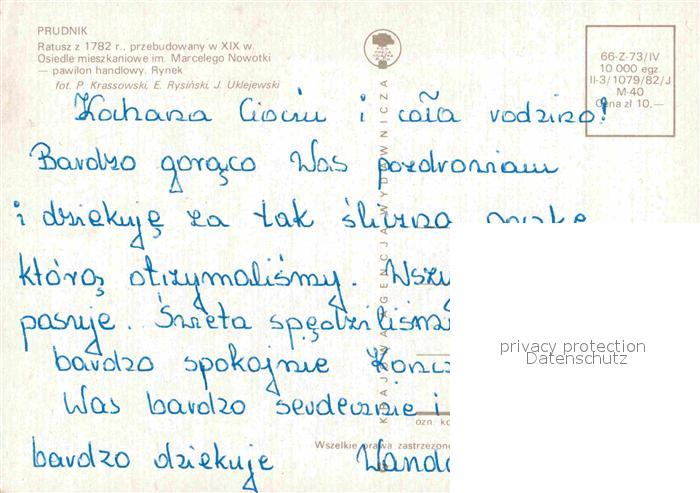 PRUDNIK
Ratusz z 1782 r., przebudowany w XIX w.
Osiedle mieszkaniowe im. Marcelego Nowotki
— pawilon handlowy. Rynek
fot. P. Krassowski, E. Rysiński, J. Uklejewski
66-Z-73/IV
10 000 egz.
II-3/1079/82/J
M-40
Cena zł 10,—
KRAJOWA AGENCJA WYDAWNICZA
Kochana Ciociu i cała rodzino!
Bardzo gorąco Was pozdrawiam
i dziękuję za tak śliczną
którą otrzymaliśmy.
pasuje. Święta spędziliśmy
bardzo spokojnie
Was bardzo serdecznie i
bardzo dziękuje Wanda
Wszelkie prawa zastrzeżone
privacy protection
Datenschutz